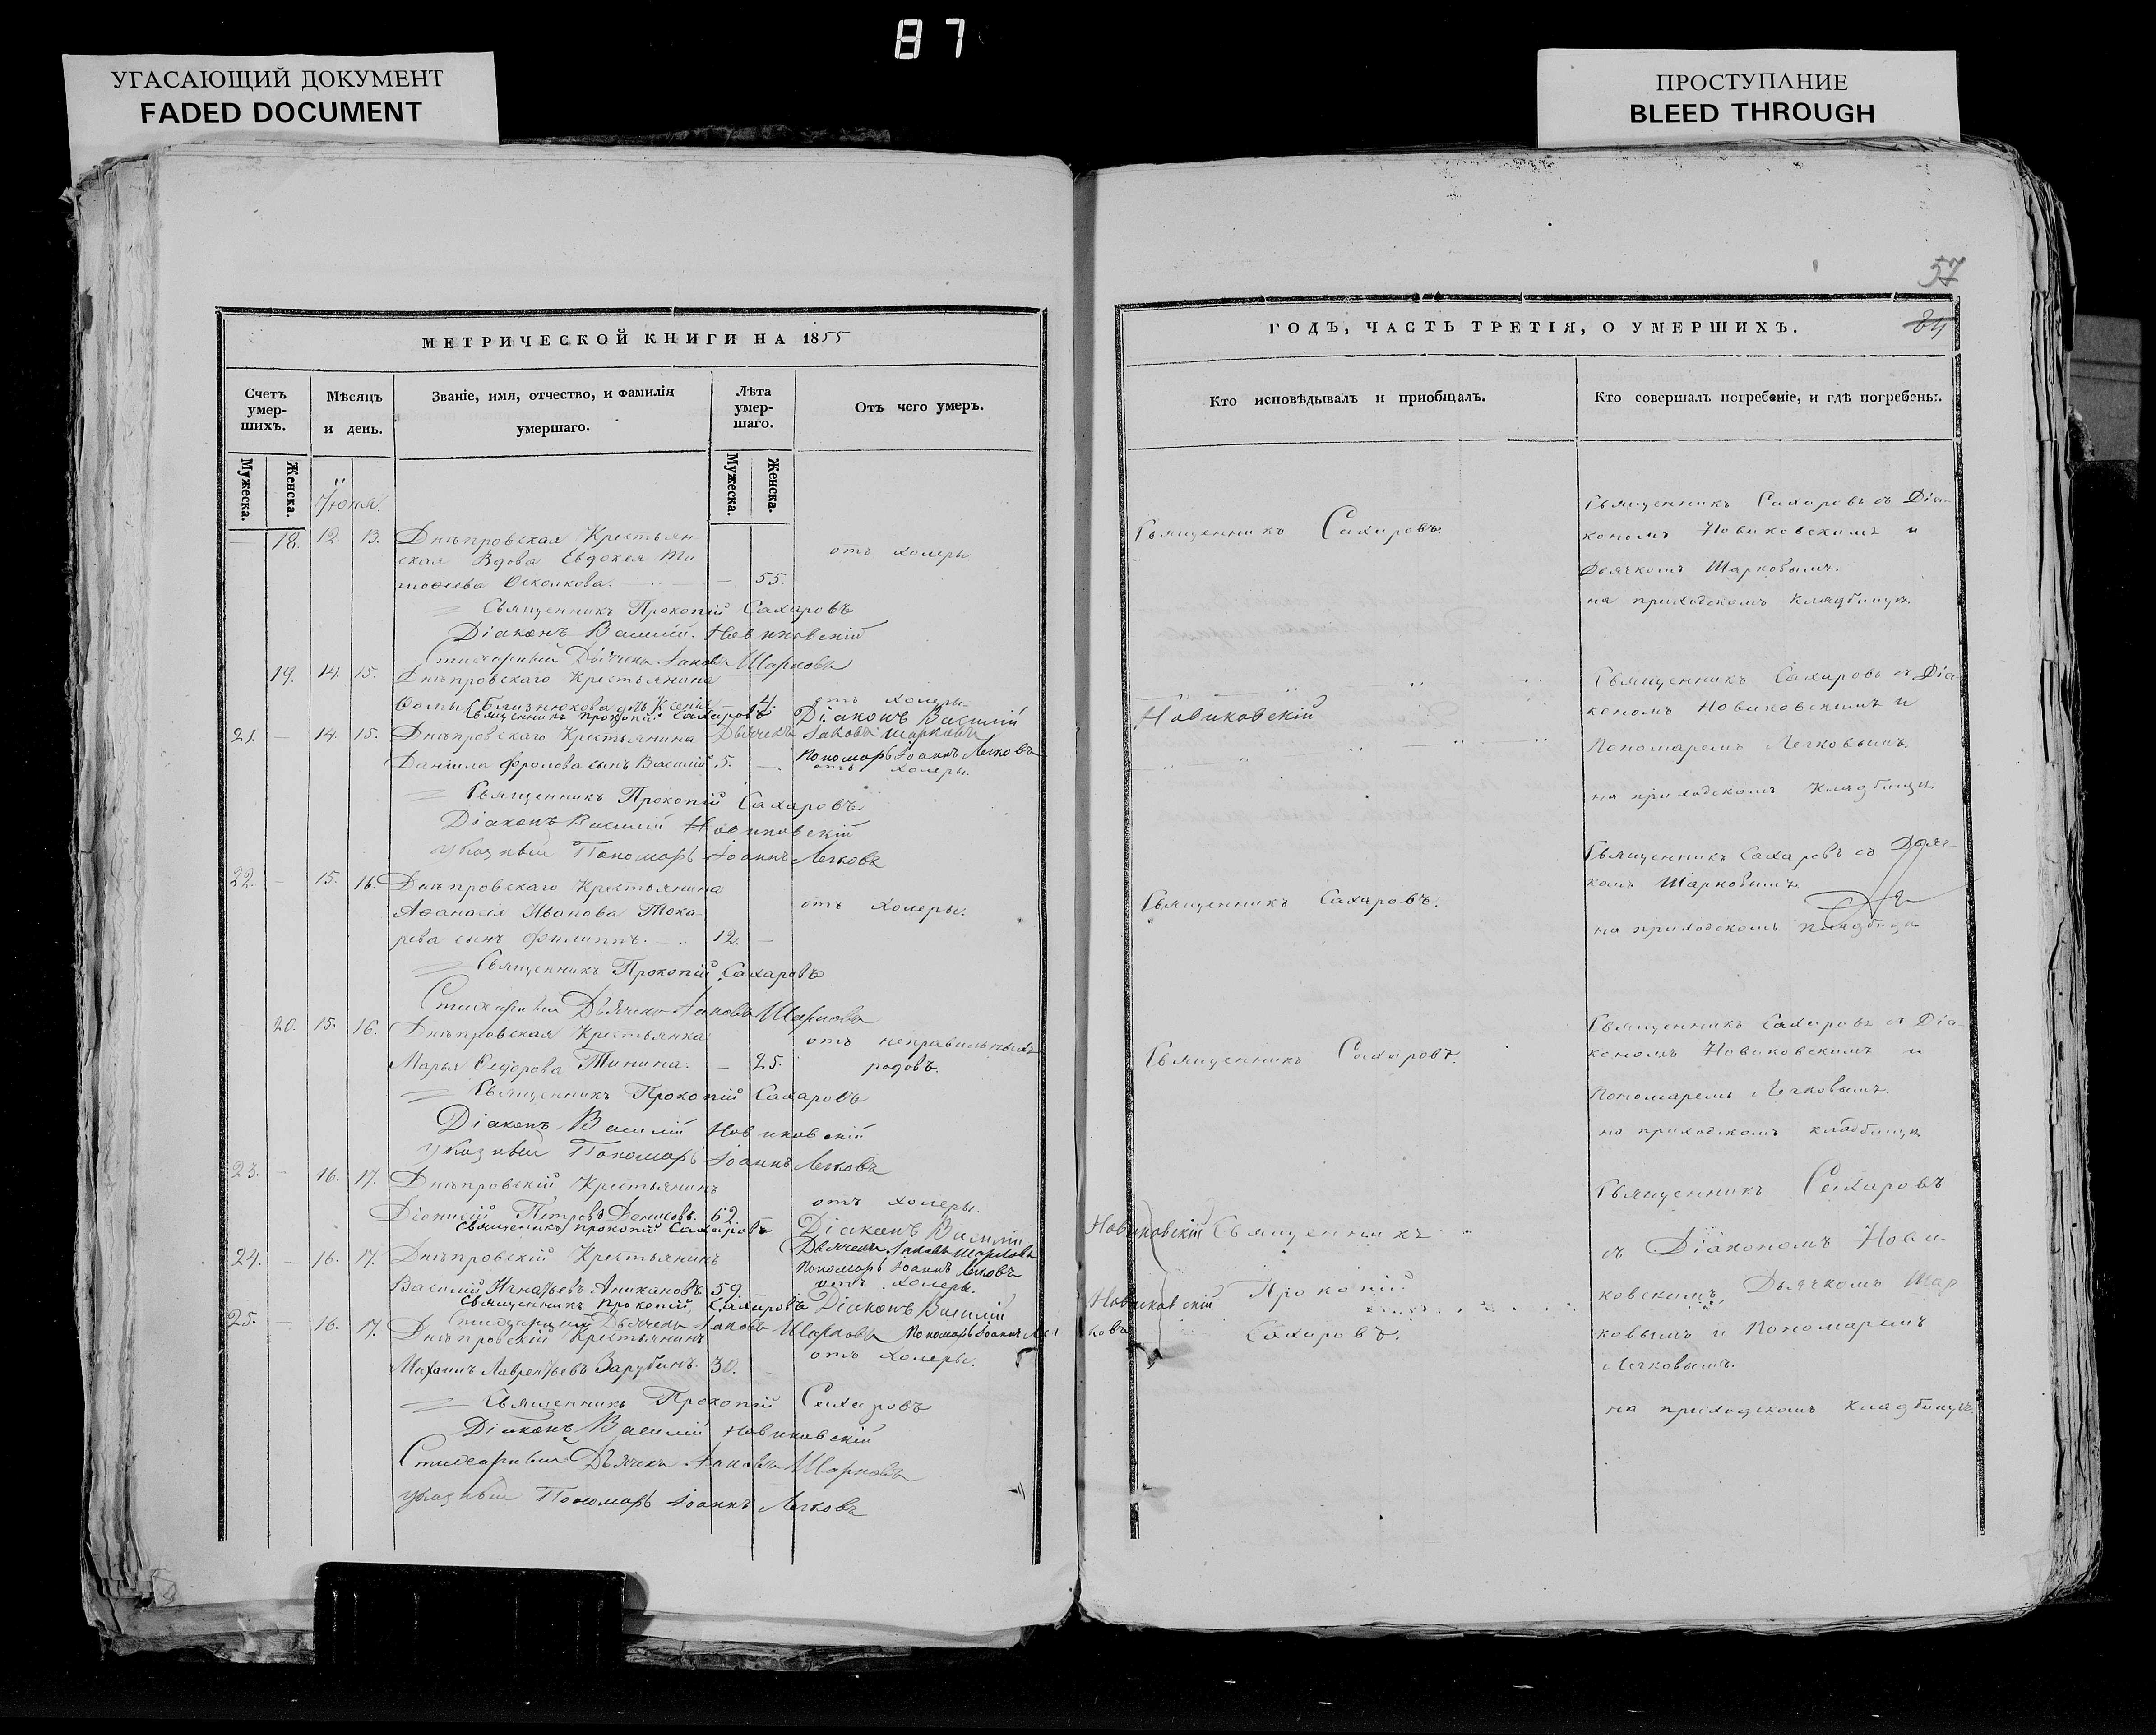 87
УГАСАЮЩИЙ ДОКУМЕНТ
FADED DOCUMENT
ПРОСТУПАНИЕ
BLEED THROUGH
57
МЕТРИЧЕСКОЙ КНИГИ НА 1855
Счетъ умер-шихъ.
Мѣсяцъ и день.
Званіе, имя, отчество, и фамилія умершаго.
Лѣта умер-шаго.
Отъ чего умеръ.
Мужеска.
Женска.
Мужеска.
Женска.
Іюня.
18. 12. 13. Днѣпровская Крестьян-
ская Вдова Евдокея Ти- отъ холеры.
моѳеева Осколкова. — 55.
Священникъ Прокопій Сахаровъ
Діаконъ Василій Новиковскій
Стихарный Дьячекъ Іаковъ Шарковъ
19. 14. 15. Днѣпровскаго Крестьянина
Ѳомы Близнюкова дочь Ксенія — 4. отъ холеры
Священникъ Прокопій Сахаровъ Діаконъ Василій
21. — 14. 15. Днѣпровскаго Крестьянина Дьячекъ Іаковъ Шарковъ
Пономарь Іоаннъ Легковъ
Даніила Фролова сынъ Василій 5. — отъ холеры.
Священникъ Прокопій Сахаровъ
Діаконъ Василій Новиковскій
указный Пономарь Іоаннъ Легковъ
22. — 15. 16. Днѣпровскаго Крестьянина
Аѳанасія Иванова Тока- отъ холеры.
рева сынъ Филиппъ. 12. —
Священникъ Прокопій Сахаровъ
Стихарный Дьячекъ Іаковъ Шарковъ
20. 15. 16. Днѣпровская Крестьянка
отъ неправильныхъ
Марья Ѳедорова Тинина. — 25. родовъ.
Священникъ Прокопій Сахаровъ
Діаконъ Василій Новиковскій
указный Пономарь Іоаннъ Легковъ
23. — 16. 17. Днѣпровскій Крестьянинъ
Діонисій Петровъ 62. отъ холеры.
Священникъ Прокопій Сахаровъ Діаконъ Василій
Дьячекъ Іаковъ Шарковъ
24. — 16. 17. Днѣпровскій Крестьянинъ
Пономарь Іоаннъ Легковъ
Василій Игнатьевъ Аникановъ. 59. отъ холеры.
Священникъ Прокопій Сахаровъ Діаконъ Василій
Стихарный Дьячекъ Іаковъ Шарковъ Пономарь Іоаннъ Лег
25. — 16. 17. Днѣпровскій Крестьянинъ
отъ холеры.
Михаилъ Лаврентьевъ Зарубинъ. 30. —
Священникъ Прокопій Сахаровъ
Діаконъ Василій Новиковскій
Стихарный Дьячекъ Іаковъ Шарковъ
указный Пономарь Іоаннъ Легковъ
ГОДЪ, ЧАСТЬ ТРЕТІЯ, О УМЕРШИХЪ.
84
Кто исповѣдывалъ и пріобщалъ.
Кто совершалъ погребеніе, и гдѣ погребены.
Священникъ Сахаровъ.
Священникъ Сахаровъ съ Діа-
кономъ Новиковскимъ и
Дьячкомъ Шарковымъ.
на приходскомъ кладбищѣ
Новиковскій
Священникъ Сахаровъ съ Діа-
кономъ Новиковскимъ и
Пономаремъ Легковымъ.
на приходскомъ кладбищѣ
Священникъ Сахаровъ.
Священникъ Сахаровъ съ Дьяч-
комъ Шарковымъ.
на приходскомъ кладбищѣ
Священникъ Сахаровъ.
Священникъ Сахаровъ съ Діа-
кономъ Новиковскимъ и
Пономаремъ Легковымъ.
на приходскомъ кладбищѣ
Новиковскій Священникъ
Новиковскій Прокопій
ковъ Сахаровъ.
Священникъ Сахаровъ
съ Діакономъ Нови-
ковскимъ, Дьячкомъ Шар-
ковымъ и Пономаремъ
Легковымъ.
на приходскомъ кладбищѣ.